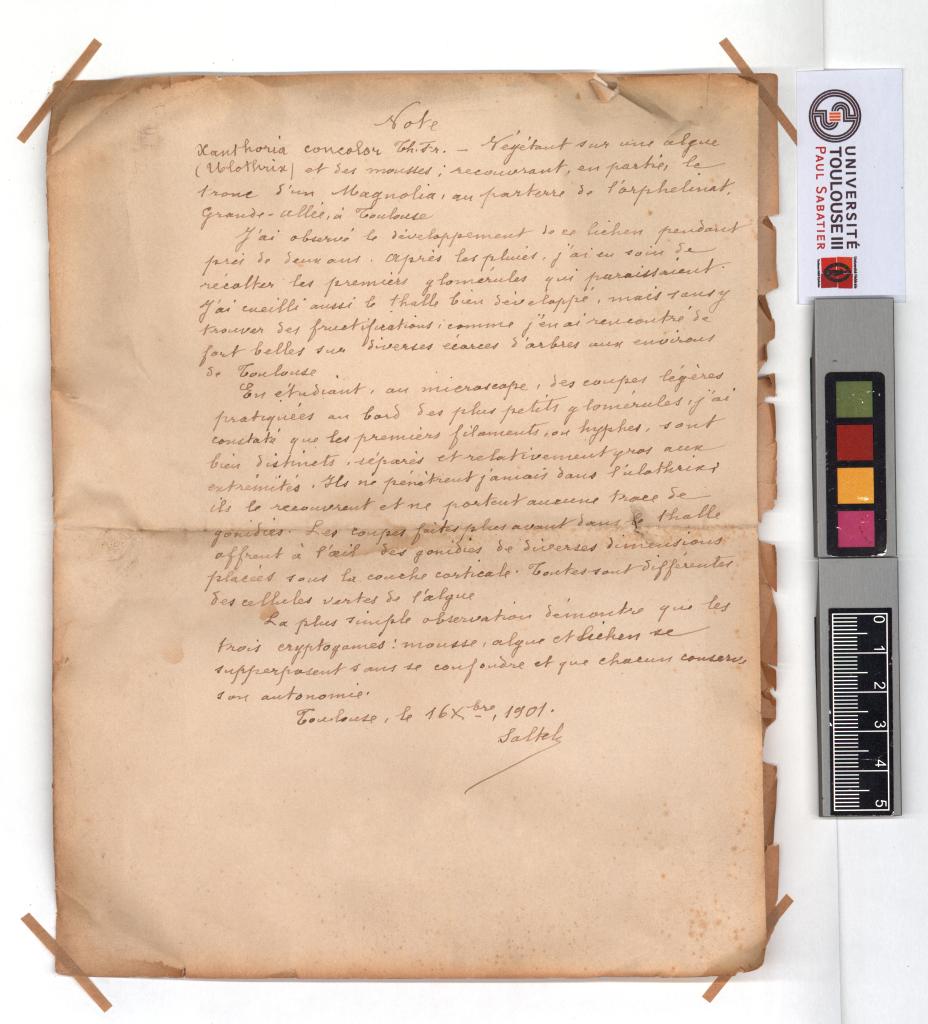 Note
Xanthoria concolor Th.Fr. — Végétant sur une algue
(Ulothrix) et des mousses ; recouvrant, en partie, le
tronc d'un Magnolia, au parterre de l'orphelinat.
Grande-allée, à Toulouse
J'ai observé le développement de ce lichen pendant
près de deux ans. Après les pluies, j'ai eu soin de
récolter les premiers glomérules qui paraissaient.
J'ai cueilli aussi le thalle bien développé, mais sans y
trouver des fructifications ; comme j'en ai rencontré de
fort belles sur diverses écorces d'arbres aux environs
de Toulouse
En étudiant, au microscope, des coupes légères
pratiquées au bord des plus petits glomérules, j'ai
constaté que les premiers filaments, ou hyphes, sont
bien distincts, séparés et relativement gros aux
extrémités. Ils ne pénètrent jamais dans l'ulothrix ;
ils le recouvrent et ne portent aucune trace de
gonidies. Les coupes faites plus avant dans le thalle
offrent à l'œil des gonidies de diverses dimensions
placées sous la couche corticale. Toutes sont différentes
des cellules vertes de l'algue
La plus simple observation démontre que les
trois cryptogames : mousse, algue et lichen se
supperposent sans se confondre et que chacun conserve
son autonomie.
Toulouse, le 16 Xbre, 1901.
Saltel
UNIVERSITÉ
TOULOUSE III
PAUL SABATIER
0
1
2
3
4
5